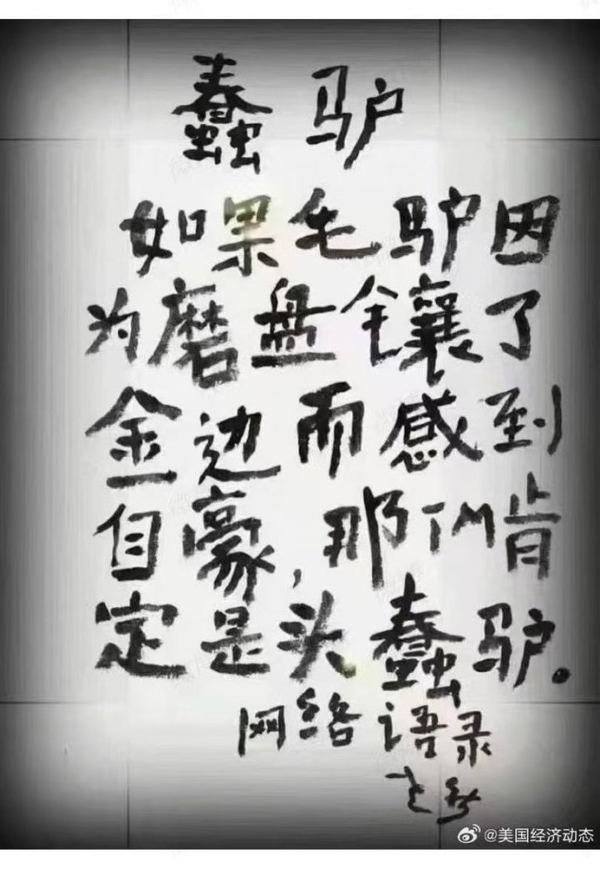 蠢驴
如果毛驴因
为磨盘镶了
金边而感到
自豪,那你肯
定是头蠢驴。
网络语录
@美国经济动态